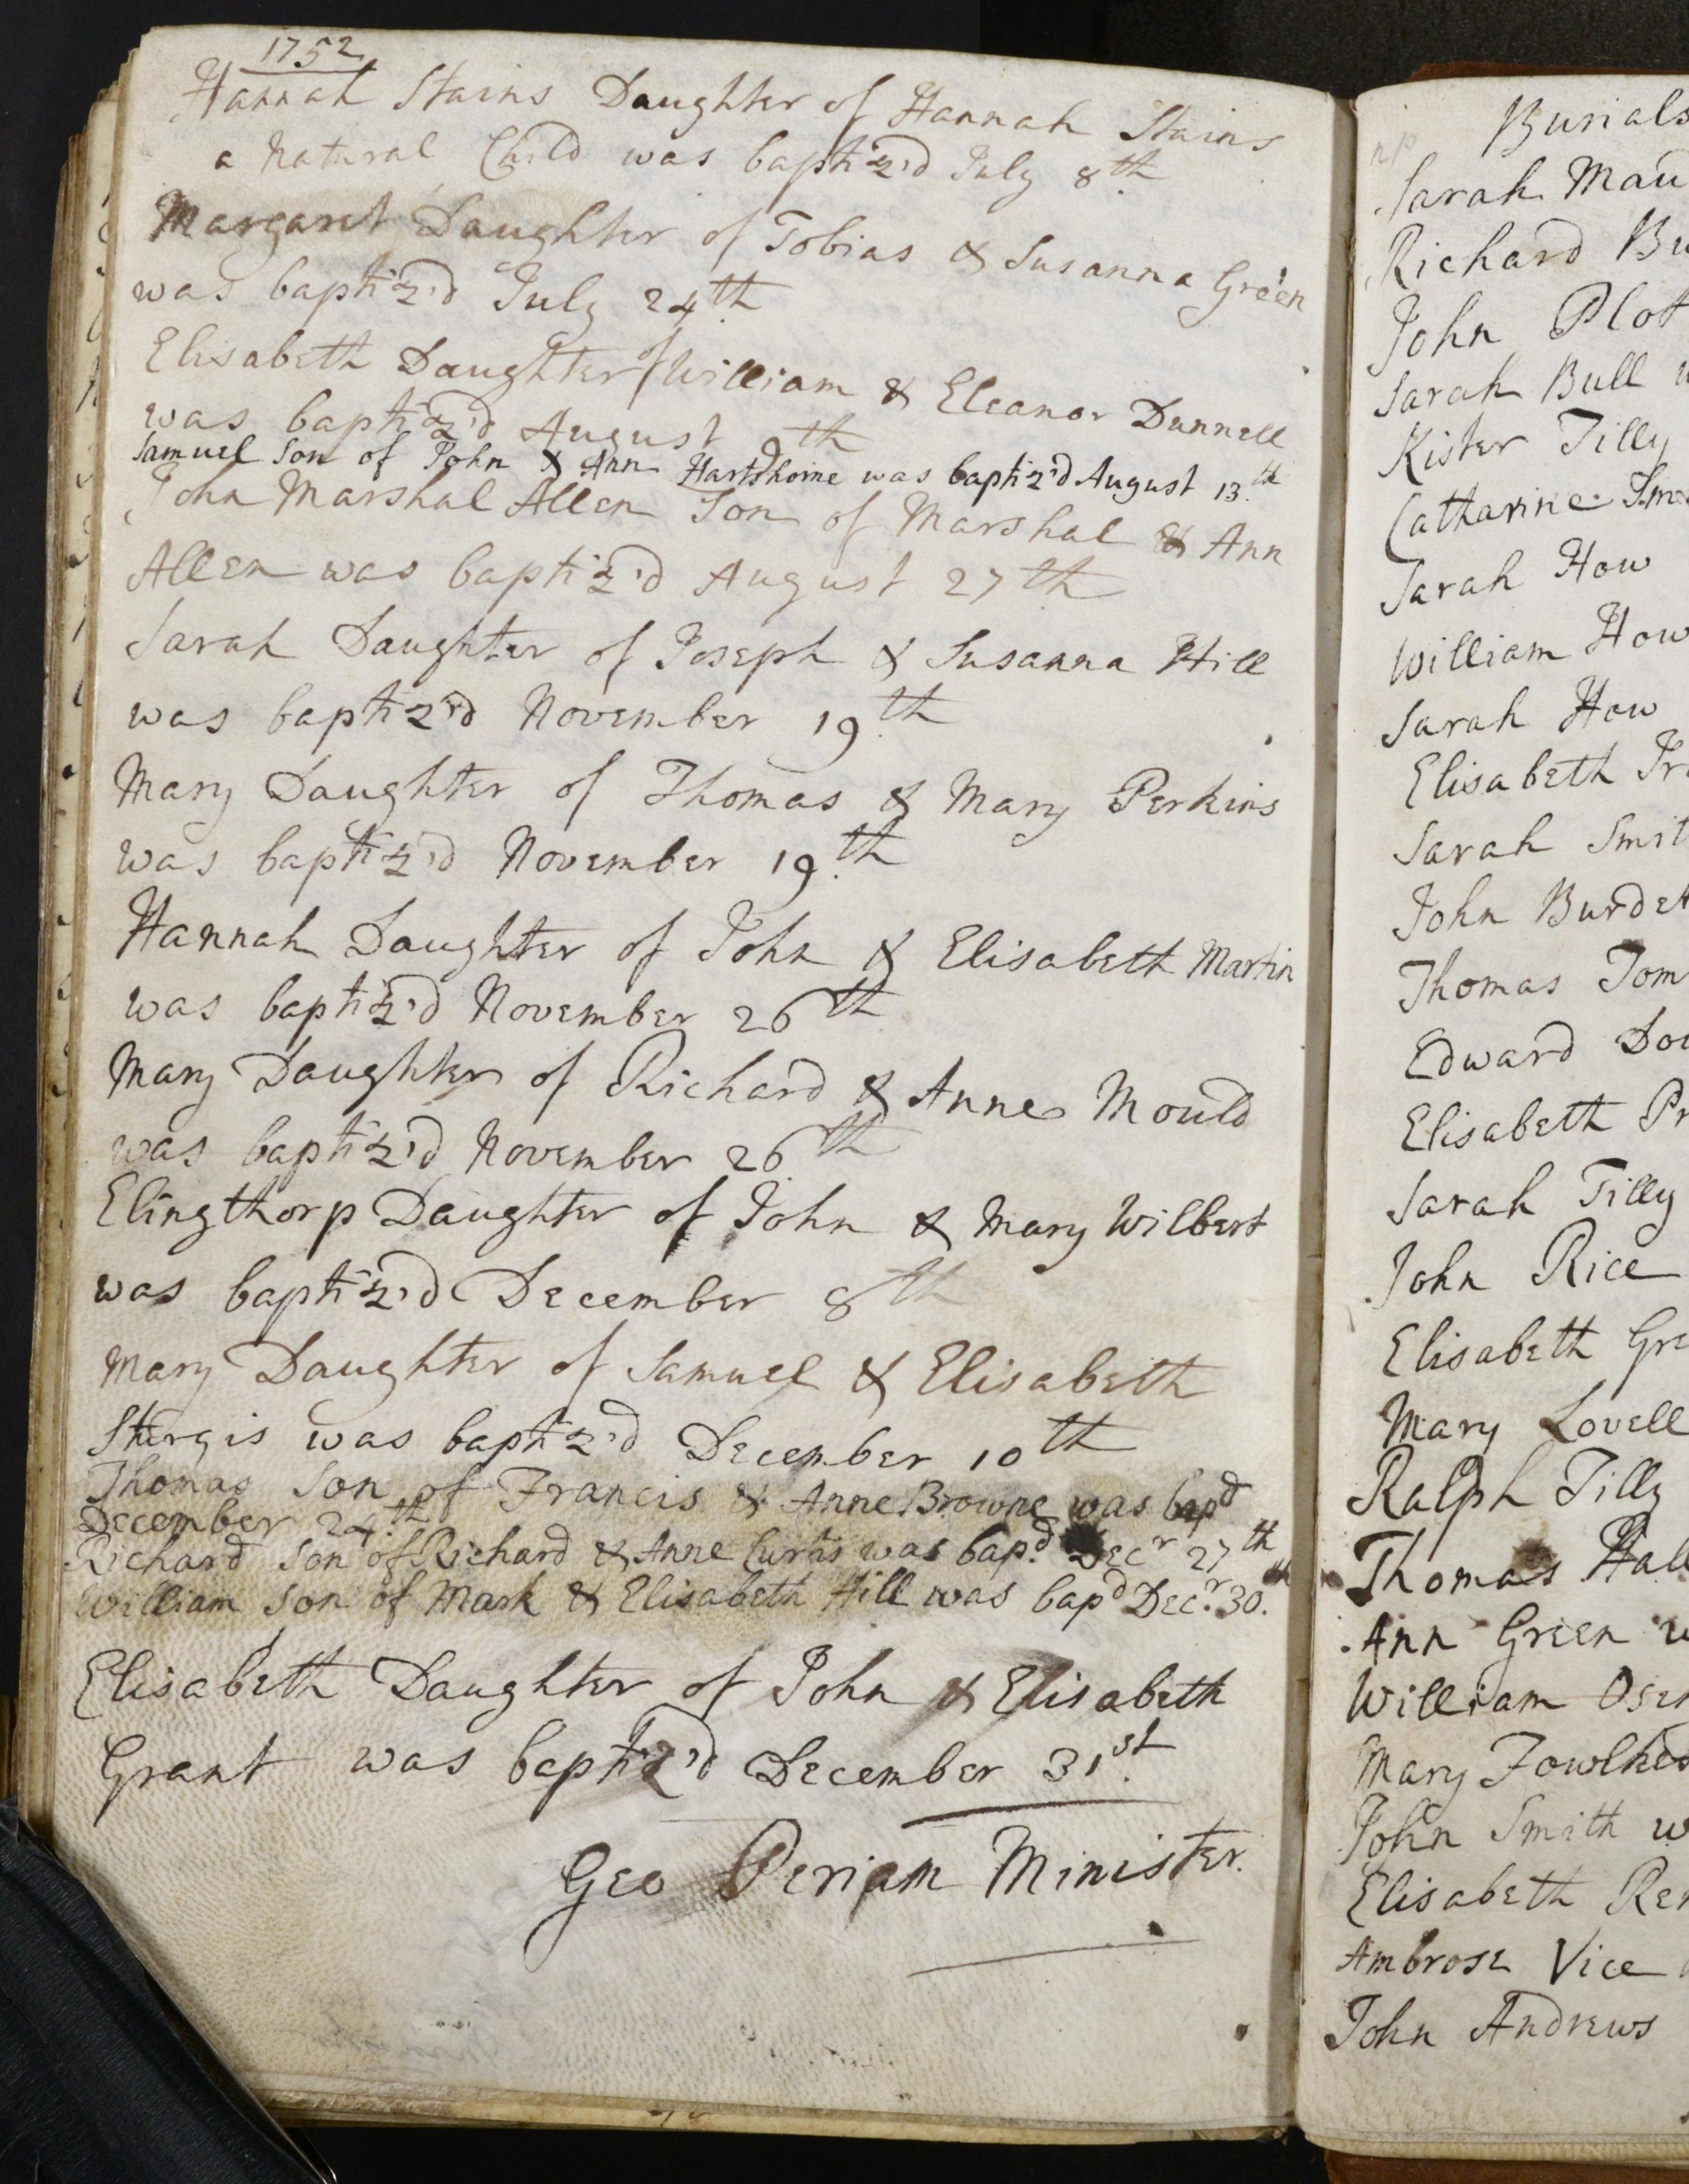 1752
Hannah Stains Daughter of Hannah Stains
a Natural Child was baptiz'd July 8th
Margaret Daughter of Tobias & Susanna Green
was baptiz'd July 24th
Elisabeth Daughter of William & Eleanor Dunnell
was baptiz'd August 9th
Samuel Son of John & Ann Hartshorne was baptiz'd August 13.th
John Marshal Allen Son of Marshal & Ann
Allen was baptiz'd August 27th
Sarah Daughter of Joseph & Susanna Hill
was baptiz'd November 19th
Mary Daughter of Thomas & Mary Perkins
was baptiz'd November 19th
Hannah Daughter of John & Elisabeth Martin
was baptiz'd November 26th
Mary Daughter of Richard & Anne Mould
was baptiz'd November 26th
Elingthorp Daughter of John & Mary Wilbert
was baptiz'd December 8th
Mary Daughter of Samuel & Elisabeth
Sturgis was baptiz'd December 10th
Thomas Son of Francis & Anne Browne was bapd
December 24.th
Richard Son of Richard & Anne Curtis was bap.d Decr 27th
William Son of Mark & Elisabeth Hill was bapd Dec.r 30.th
Elisabeth Daughter of John & Elisabeth
Grant was baptiz'd December 31st.
Geo Periam Minister.
np
Burials
Sarah Mau
Richard Bu
John Plot
Sarah Bull w
Kister Tilly
Catharine Sm
Sarah How
William How
Sarah How
Elisabeth Tr
Sarah Smit
John Burdet
Thomas Tom
Edward Do
Elisabeth Pr
Sarah Tilly
John Rice
Elisabeth Gre
Mary Lovell
Ralph Tilly
Thomas Hall
Ann Green w
William Osen
Mary Fowlkes
John Smith w
Elisabeth Ren
Ambrose Vice
John Andrews